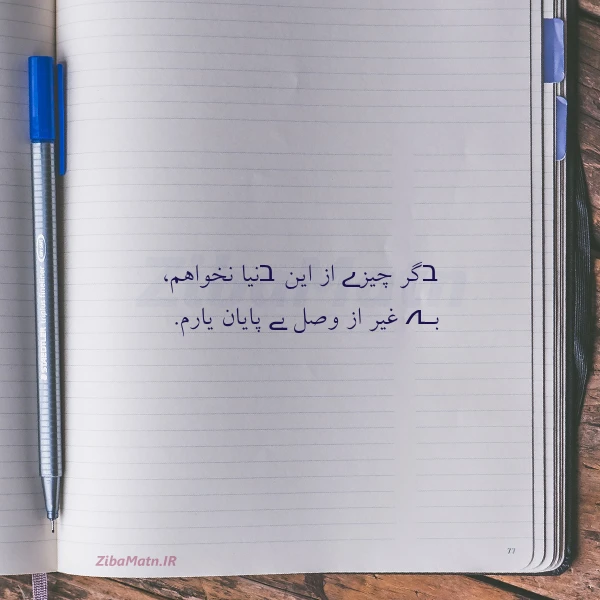 دگر چیزے از این دنیا نخواهم،
بـہ غیر از وصل بے پایان یارم.
77
ZibaMatn.IR